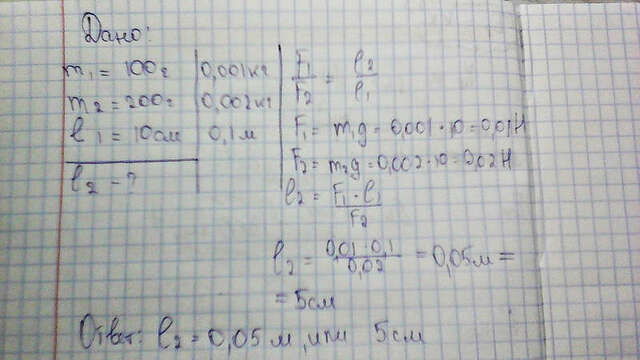 Дано:
m₁ = 100г | 0,001кг | F₁/F₂ = l₂/l₁
m₂ = 200г | 0,002кг
l₁ = 10см | 0,1м | F₁ = m₁g = 0,001·10 = 0,01Н
l₂ - ? | F₂ = m₂g = 0,002·10 = 0,02Н
l₂ = F₁·l₁/F₂
l₂ = 0,01·0,1/0,02 = 0,05м =
= 5см
Ответ: l₂ = 0,05м, или 5см